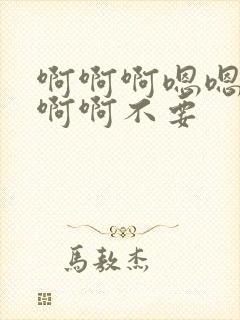 啊啊啊嗯嗯
啊啊不要
馬敖杰